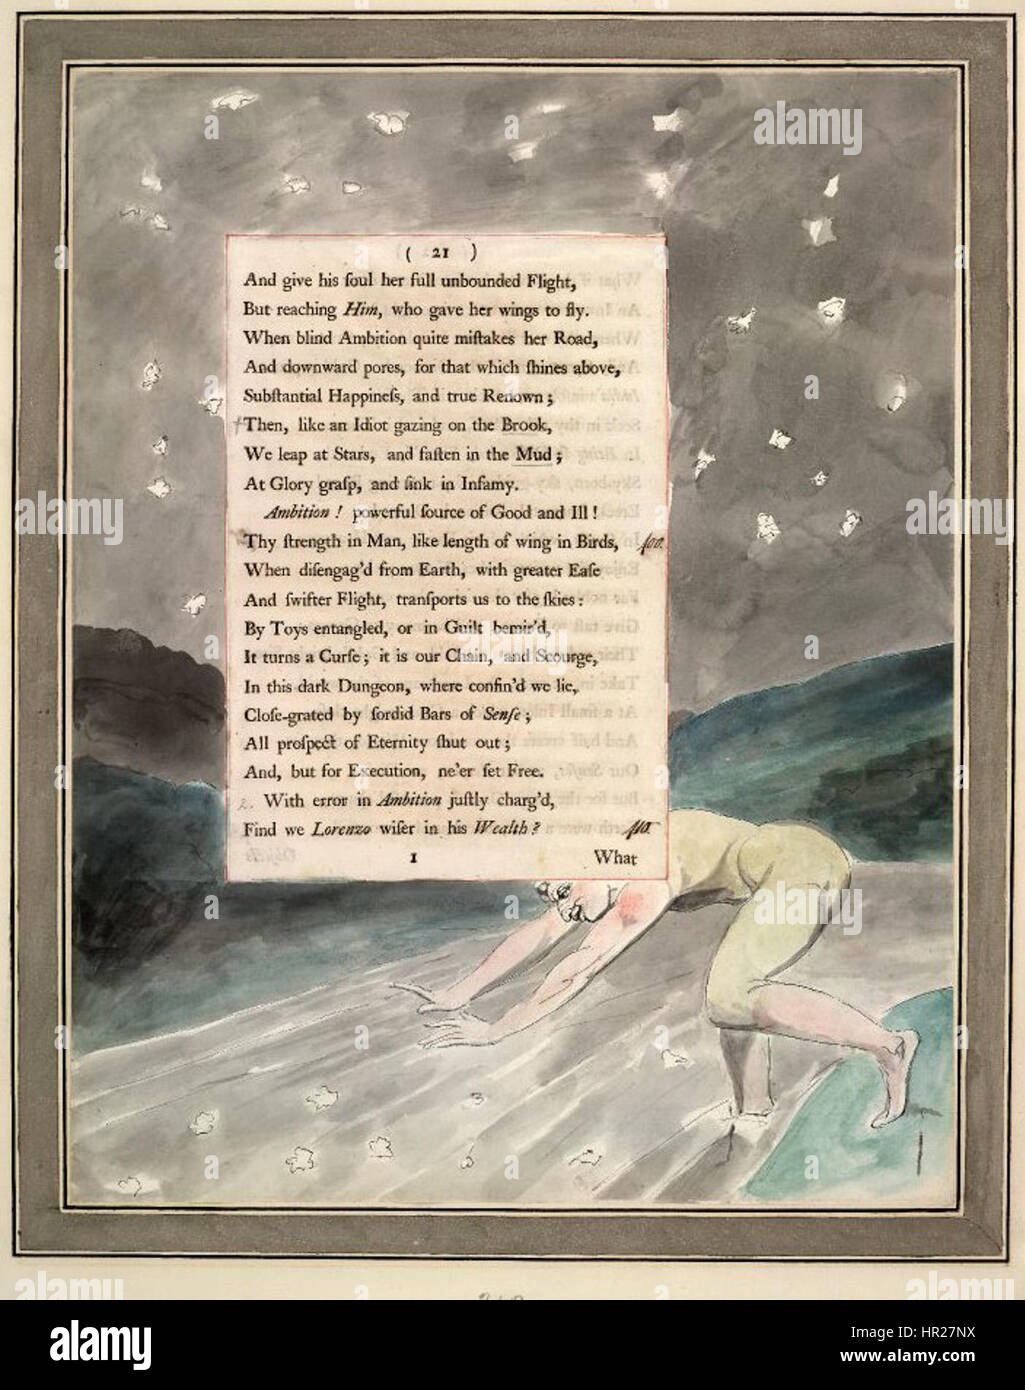 ( 21 )
And give his ſoul her full unbounded Flight,
But reaching Him, who gave her wings to fly.
When blind Ambition quite miſtakes her Road,
And downward pores, for that which ſhines above,
Subſtantial Happineſs, and true Renown;
Then, like an Idiot gazing on the Brook,
We leap at Stars, and faſten in the Mud;
At Glory graſp, and ſink in Infamy.
Ambition! powerful ſource of Good and Ill!
Thy ſtrength in Man, like length of wing in Birds, 400.
When diſengag'd from Earth, with greater Eaſe
And ſwifter Flight, tranſports us to the ſkies:
By Toys entangled, or in Guilt bemir'd,
It turns a Curſe; it is our Chain, and Scourge,
In this dark Dungeon, where confin'd we lie,
Cloſe-grated by ſordid Bars of Senſe;
All proſpect of Eternity ſhut out;
And, but for Execution, ne'er ſet Free.
2. With error in Ambition juſtly charg'd,
Find we Lorenzo wiſer in his Wealth? 410.
I What
alamy
alamy
alamy
alamy
alamy
alamy
alamy
Image ID: HR27NX
www.alamy.com